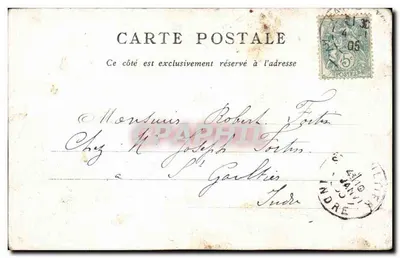 CARTE POSTALE
Ce côté est exclusivement réservé à l'adresse
05
Monsieur Robert Fortin
Chez M Joseph Fortin
à St Gaultier
Indre
JANV
INDRE